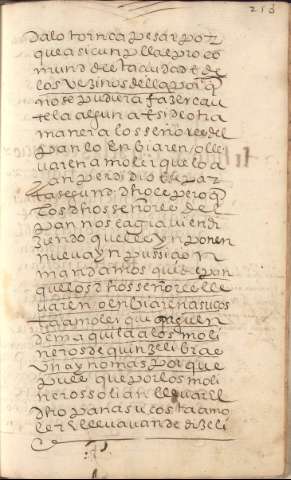 213
dalo tor nca pesar por
que asi cunplla el pro co
mun de esta ciudad e de
los vezinos della por q
no se pudiera fazer cau
tela alguna e si de otra
manera los señores del
pan lo enbiaren o lle
varen a moler que lo a
yan perdido e se par
ta segund dho es pero q
los dhos señores del
pan nos
ziendo que es
nueva ynpusiçion
mandamos que de pon
que los dhos señores lle
varen o enbiaren a sus cos
tas a moler que paguen
de maquila a los moli
neros de quinze libras
una y no mas por que
pues que por los moli
neros solian llevar el
dho pan a su costa a mo
ler e llevavan de diz e li